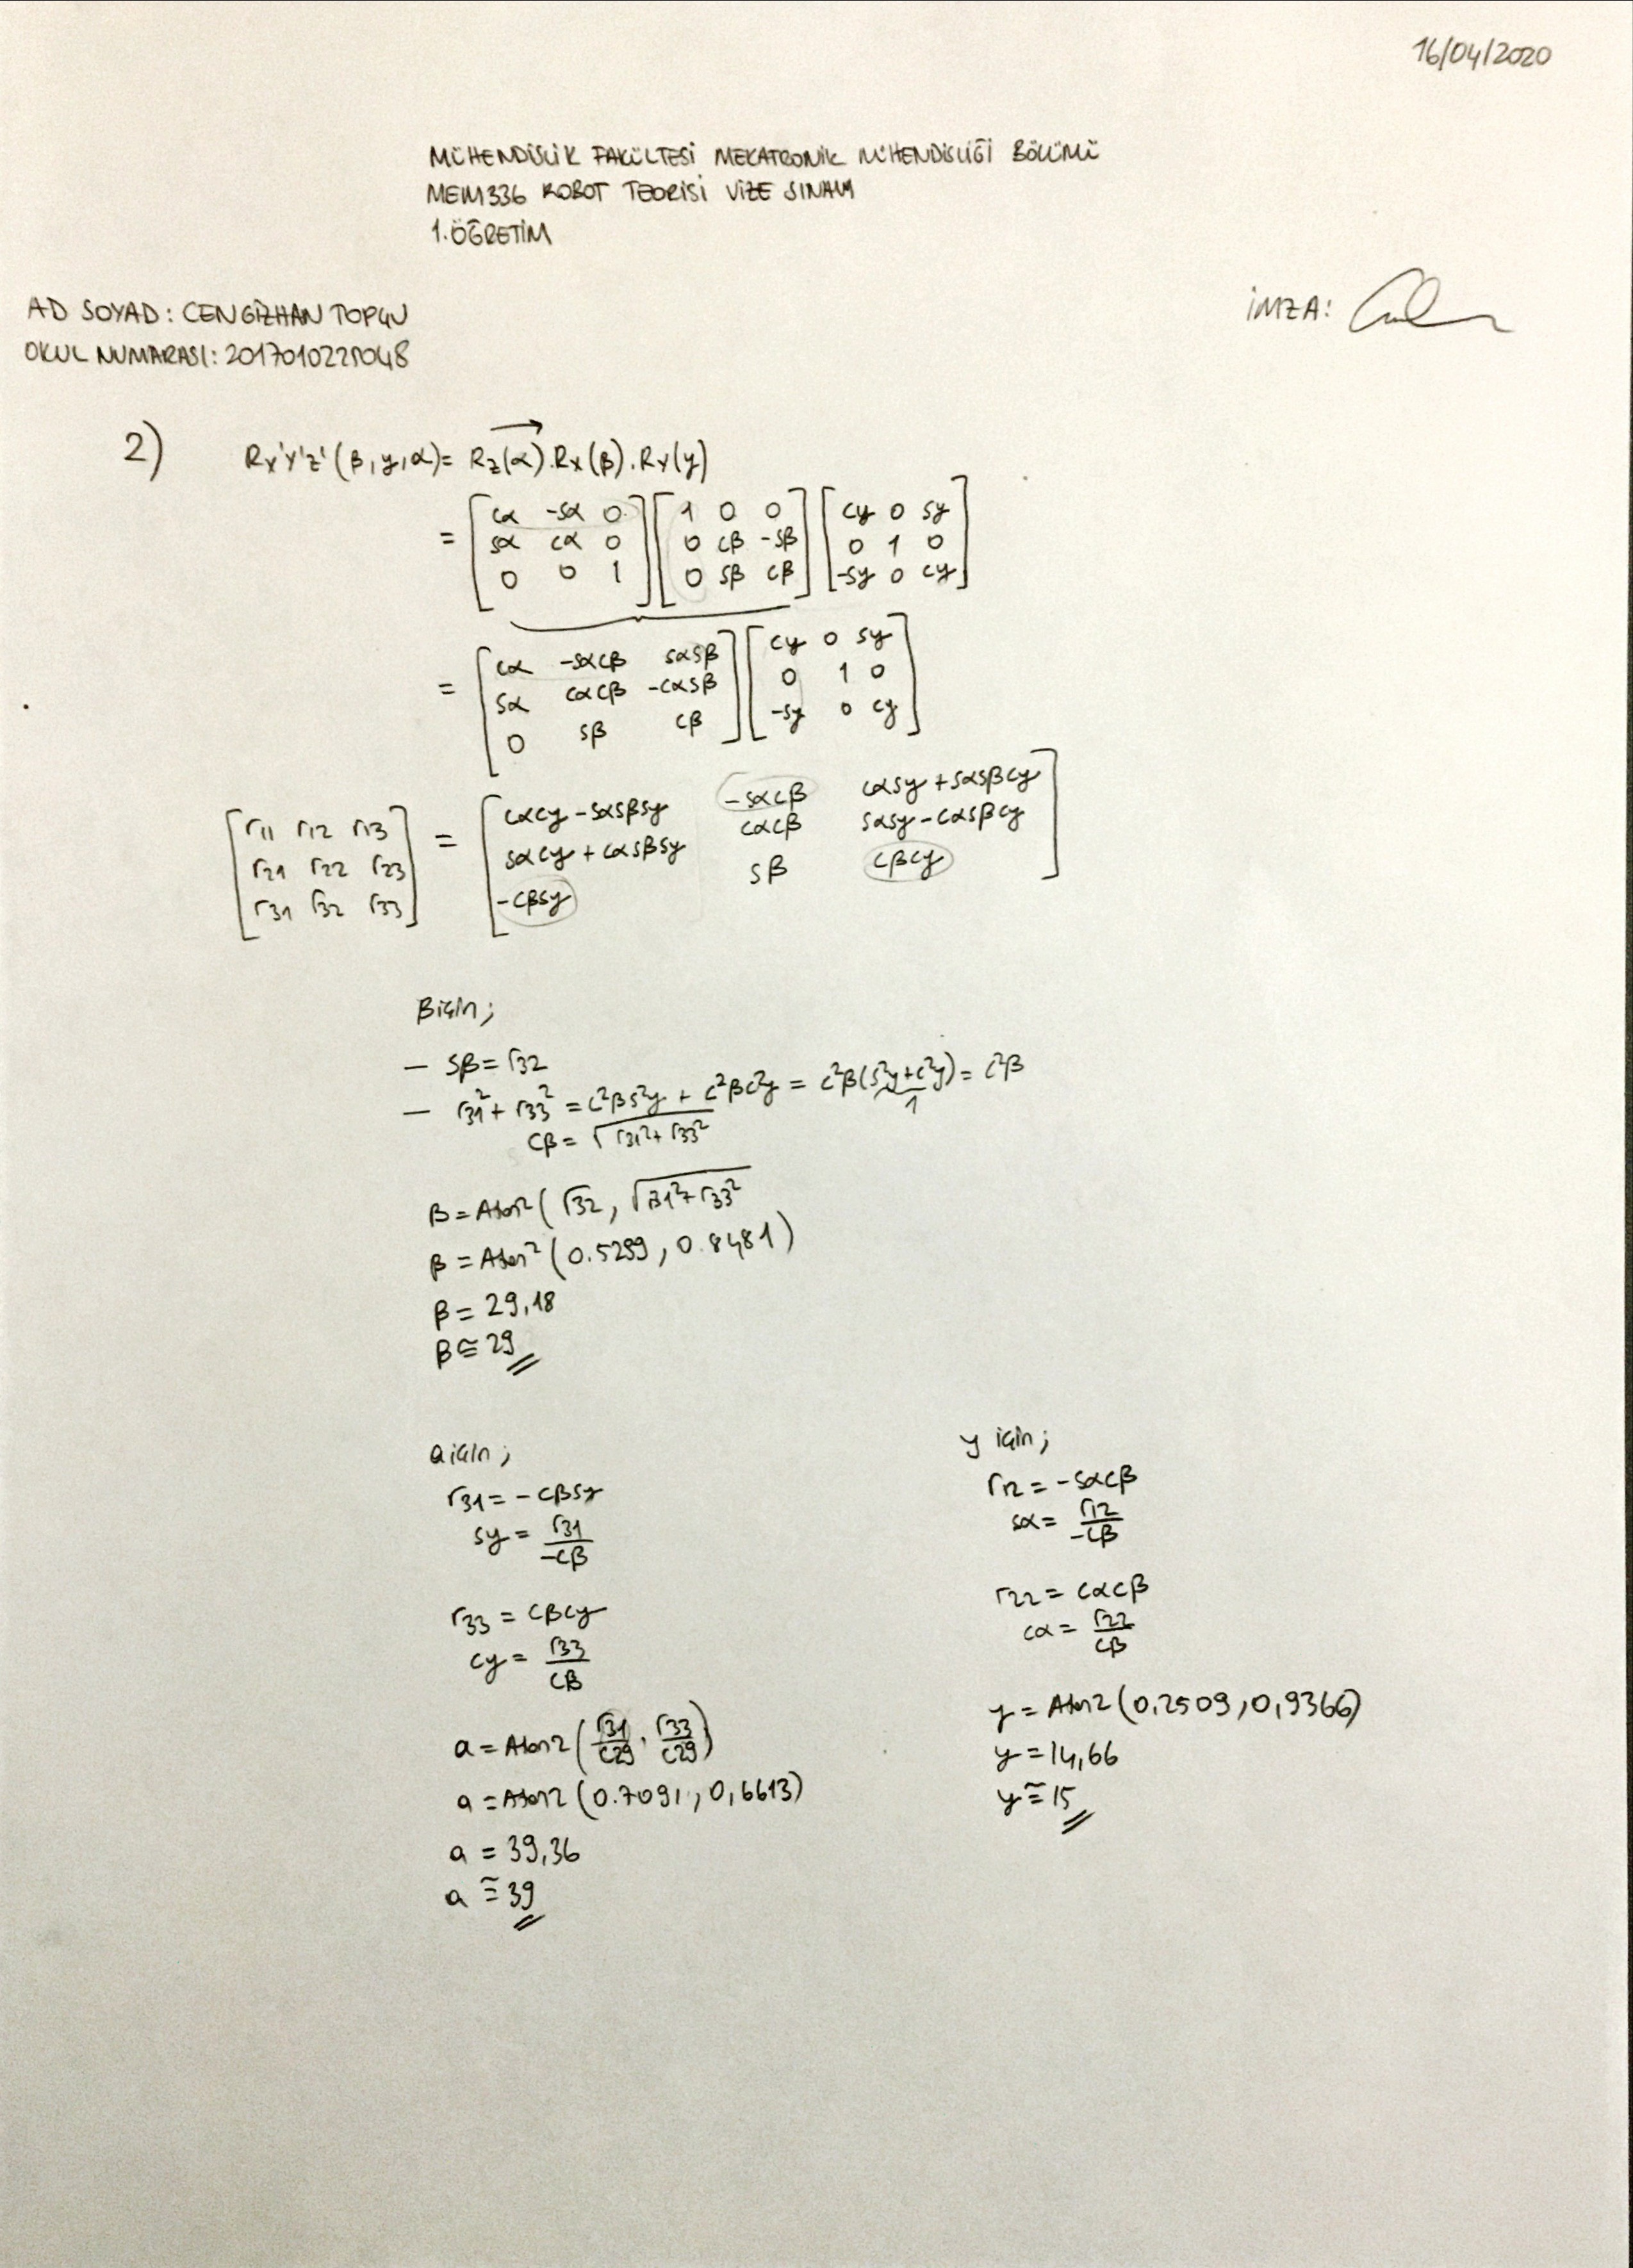 16/04/2020
MÜHENDİSLİK FAKÜLTESİ MEKATRONİK MÜHENDİSLİĞİ BÖLÜMÜ
MEM336 ROBOT TEORİSİ VİZE SINAVI
1.ÖĞRETİM
AD SOYAD: CENGİZHAN TOPÇU
İMZA:
OKUL NUMARASI:
2) Rx'Y'z'(β,y,α)= Rz(α).Rx(β).RY(y)
= [cα -sα 0; sα cα 0; 0 0 1] [1 0 0; 0 cβ -sβ; 0 sβ cβ] [cy 0 sy; 0 1 0; -sy 0 cy]
= [cα -sαcβ sαsβ; sα cαcβ -cαsβ; 0 sβ cβ] [cy 0 sy; 0 1 0; -sy 0 cy]
[r11 r12 r13; r21 r22 r23; r31 r32 r33] = [cαcy-sαsβsy -sαcβ cαsy+sαsβcy; sαcy+cαsβsy cαcβ sαsy-cαsβcy; -cβsy sβ cβcy]
β için;
- sβ = r32
- r31²+r33² = c²βs²y + c²βc²y = c²β(s²y+c²y) = c²β
1
cβ = √r31²+r33²
β = Atan2(r32, √r31²+r33²
β = Atan2(0.5299, 0.8481)
β = 29,18
β ≅ 29
a için;
r31 = -cβsy
sy = r31/-cβ
r33 = cβcy
cy = r33/cβ
a = Atan2(r31/c29, r33/c29)
a = Atan2(0.7091, 0,6613)
a = 39,36
a ≅ 39
y için;
r12 = -sαcβ
sα = r12/-cβ
r22 = cαcβ
cα = r22/cβ
y = Atan2(0,2509,0,9366)
y = 14,66
y ≅ 15